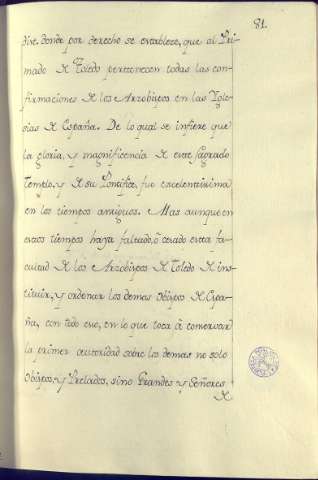 81.
dive. donde por derecho se establece, que al Pri-
mado de Toledo pertenecen todas las con-
firmaciones de los Arzobispos en las Ygle-
sias de España. De lo qual se infiere que
la gloria, y magnificencia de este sagrado
Templo, y de su Pontifice, fue excelentisima
en los tiempos antiguos. Mas aunque en
estos tiempos haya faltado, ò cesado esta fa-
cultad de los Arzobispos de Toledo de ins-
tituir, y ordenar los demas Obispos de Espa-
ña, con todo eso, en lo que toca à conservar
la primer autoridad sobre los demas no solo
Obispos, y Prelados, sino Grandes y Señores
de